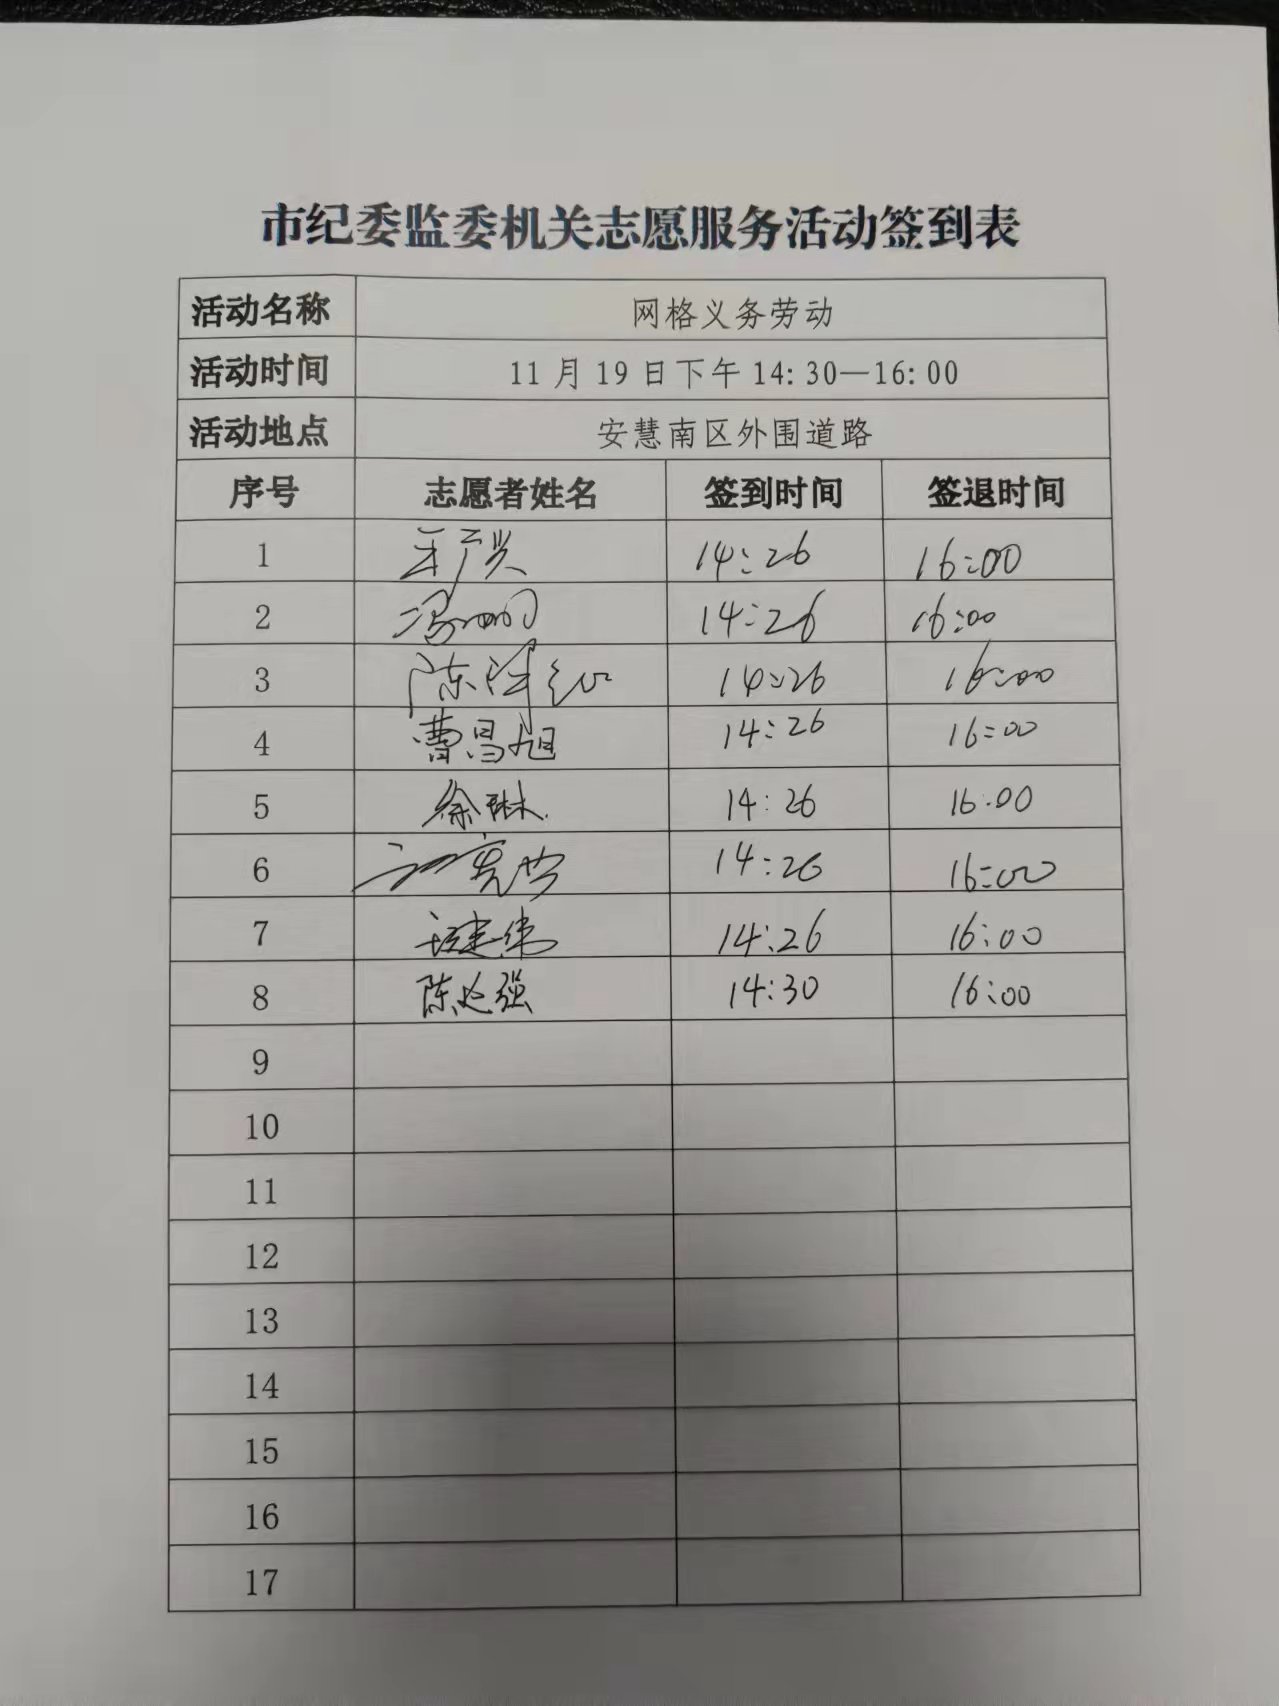 市纪委监委机关志愿服务活动签到表
活动名称 网格义务劳动
活动时间 11月19日下午14:30—16:00
活动地点 安慧南区外围道路
序号 志愿者姓名 签到时间 签退时间
1 14:26 16:00
2 14:26 16:00
3 陈 14:26 16:00
4 曹昌旭 14:26 16:00
5 徐琳 14:26 16:00
6 14:26 16:00
7 建伟 14:26 16:00
8 陈 强 14:30 16:00
9
10
11
12
13
14
15
16
17